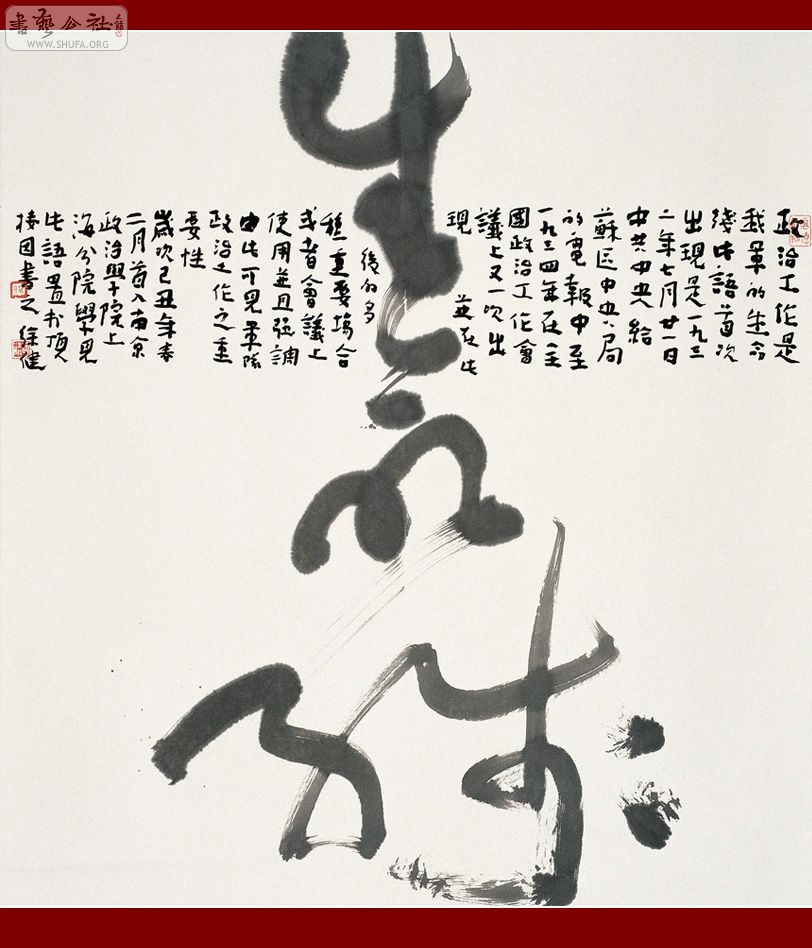 書藝公社
WWW.SHUFA.ORG
生命線
政治工作是
我軍的生命
綫此語首次
出現是一九三
二年七月廿一日
中共中央給
蘇區中央局
的電報中至
一九三四年在全
國政治工作會
議上又一次出
現
並在此
後的多
種重要場合
或者會議上
使用並且强調
由此可見軍隊
政治工作之重
要性
歲次己丑年春
二月首入南京
政治學院上
海分院學習見
此語置於頂
樓因書之 徐健